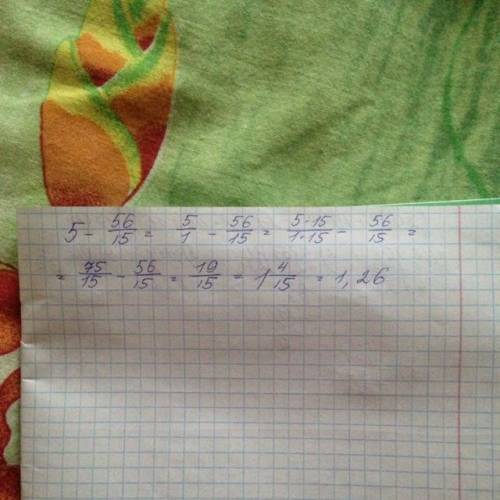 5 - 56/15 = 5/1 - 56/15 = 5·15/1·15 - 56/15 =
= 75/15 - 56/15 = 19/15 = 1 4/15 = 1,26